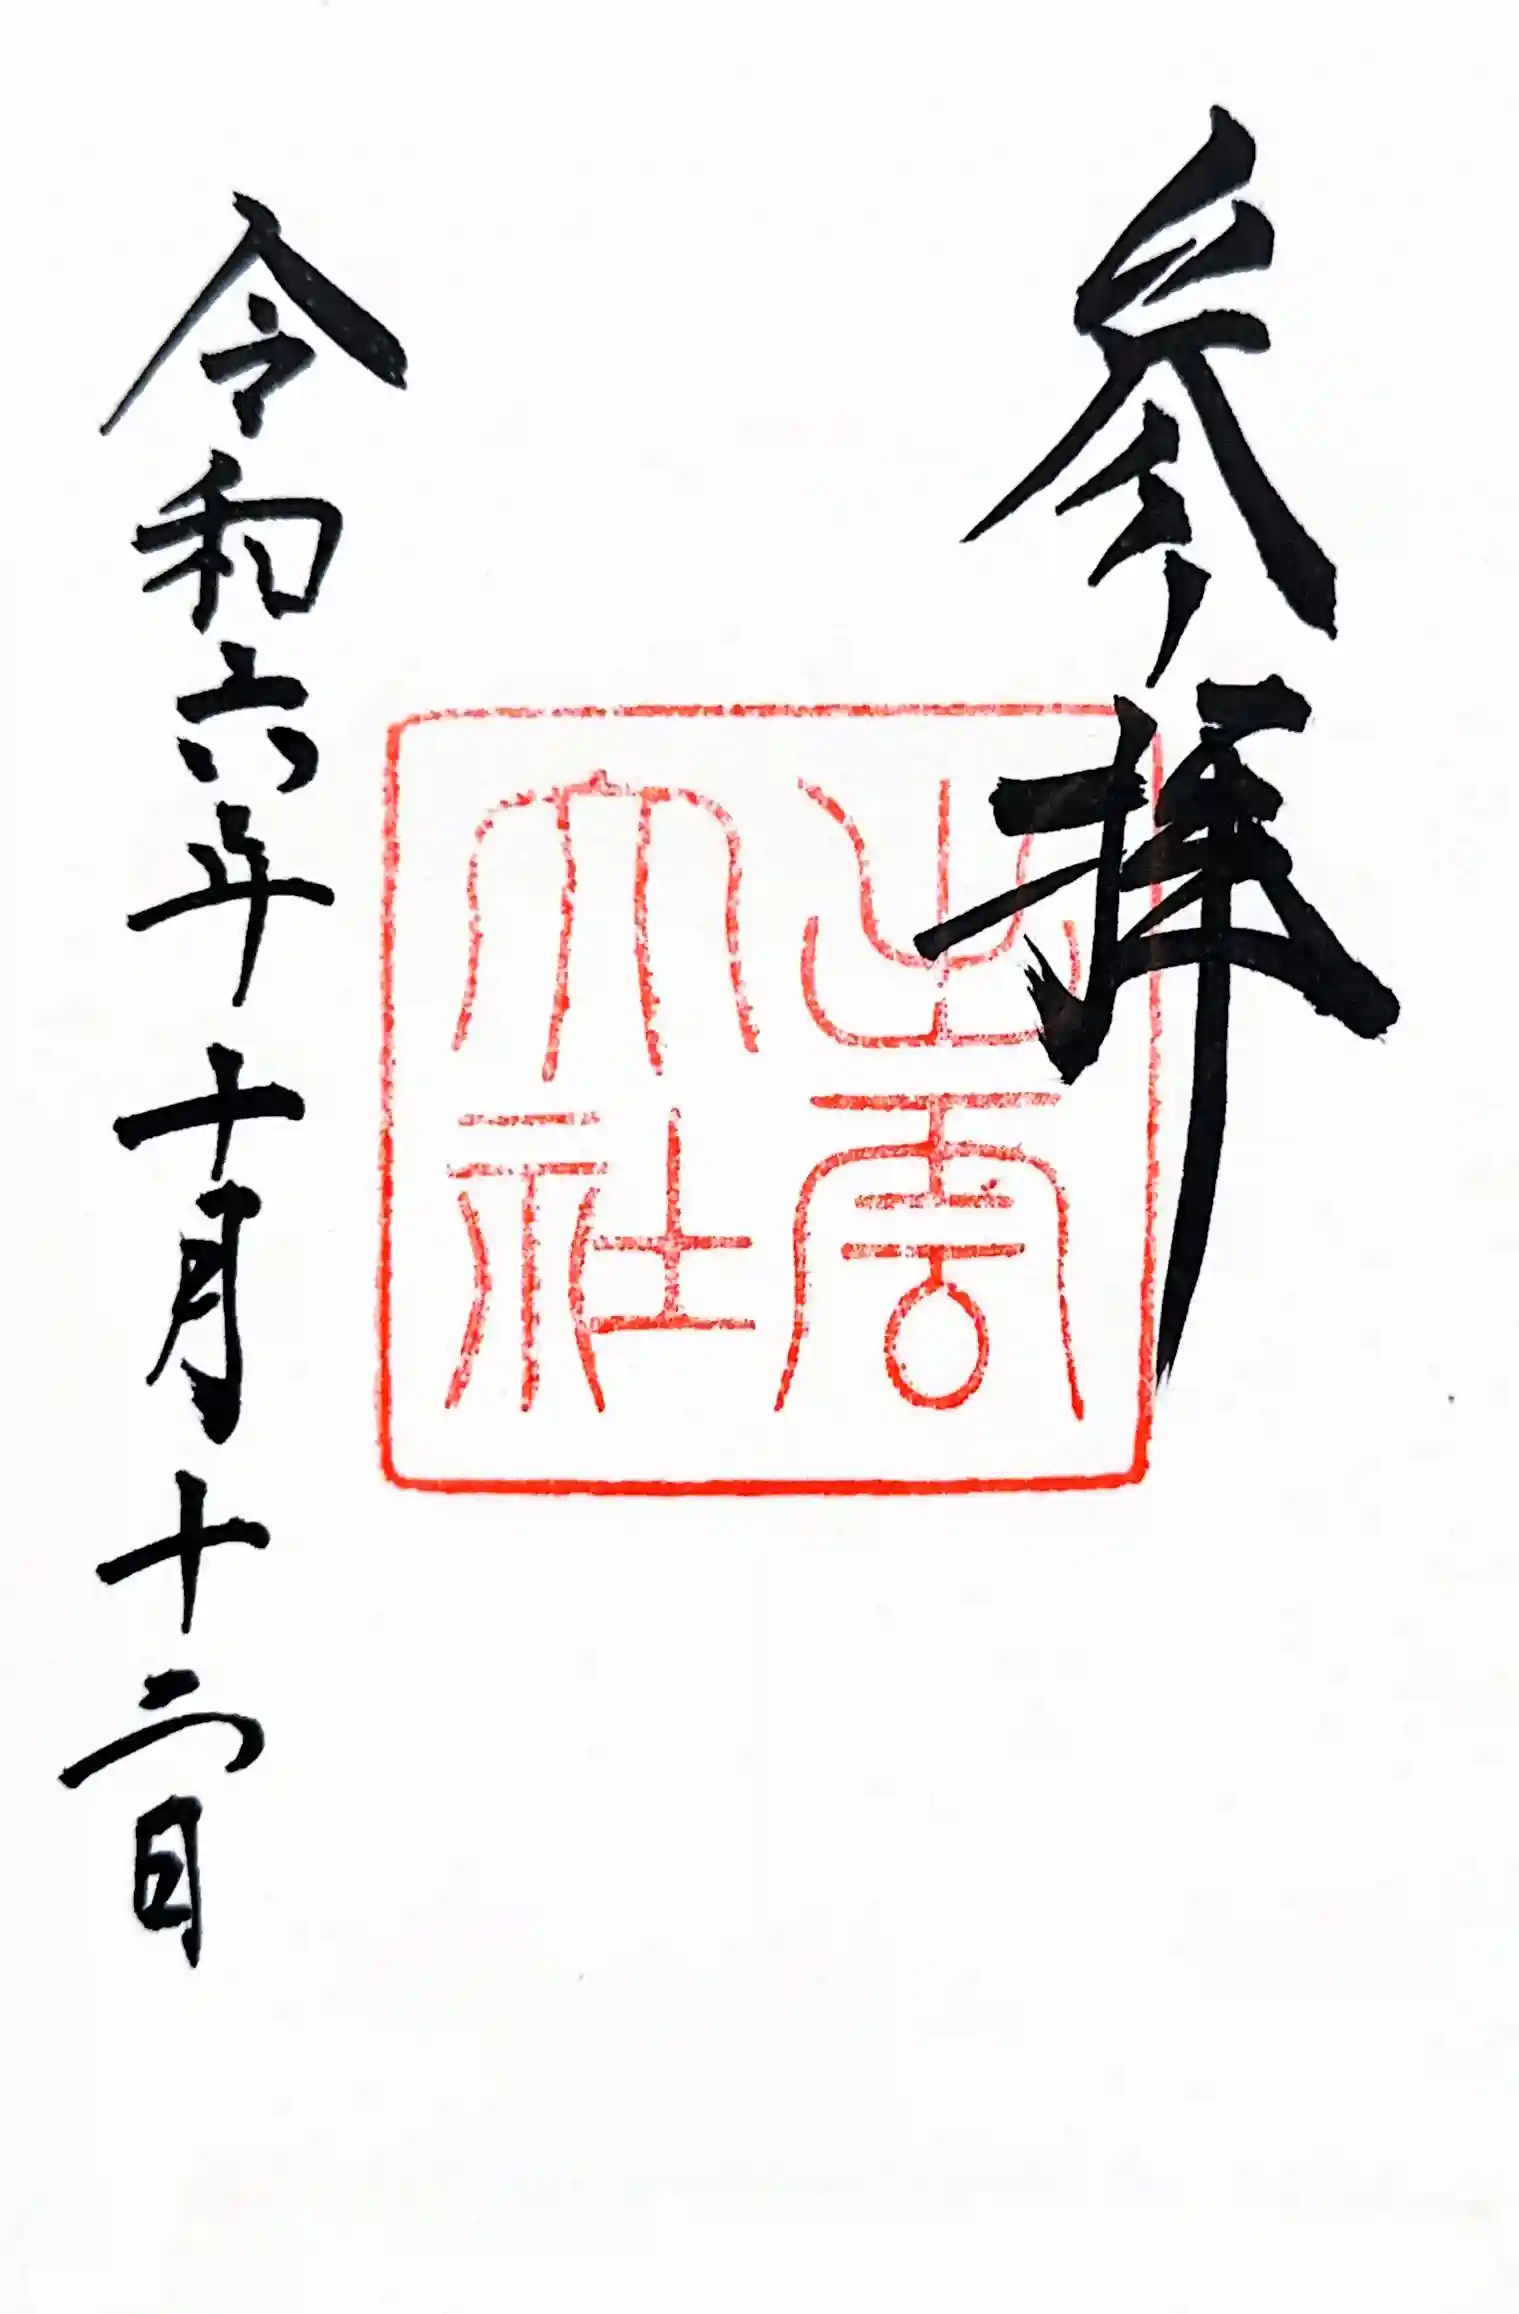 参拝
出雲
大社
令和六年十月十二日